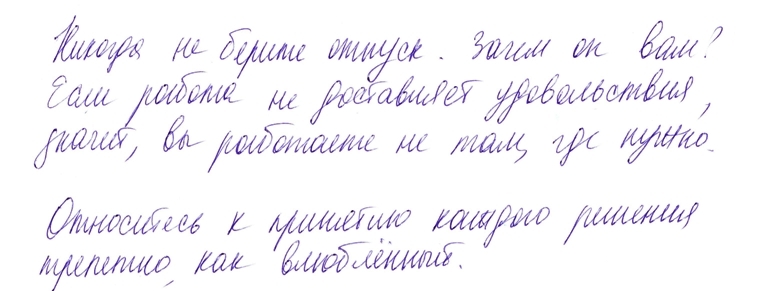 Никогда не берите отпуск. Зачем он вам?
Если работа не доставляет удовольствия,
значит, вы работаете не там, где нужно.
Относитесь к принятию каждого решения
трепетно, как влюблённый.